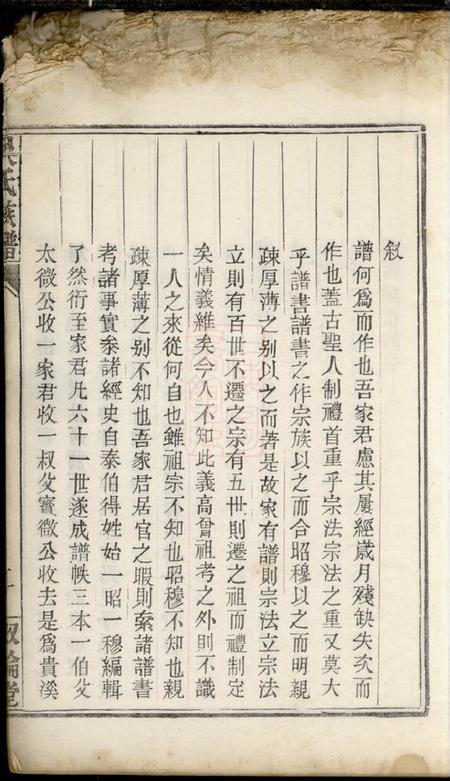 叙
譜何爲而作也吾家君慮其屢經歲月殘缺失次而
作也蓋古聖人制禮首重乎宗法宗法之重又莫大
乎譜書譜書之作宗族以之而合昭穆以之而明親
疎厚薄之别以之而著是故家有譜則宗法立宗法
立則有百世不遷之宗有五世則遷之祖而禮制定
矣情義維矣今人不知此義高曾祖考之外則不識
一人之來從何自也雖祖宗不知也昭穆不知也親
疎厚薄之别不知也吾家君居官之暇則索諸譜書
考諸事實叅諸經史自泰伯得姓始一昭一穆編輯
了然衍至家君凡六十一世遂成譜帙三本一伯父
太微公收一家君收一叔父賓微公收去是爲貴溪
吳氏族譜
叙倫堂